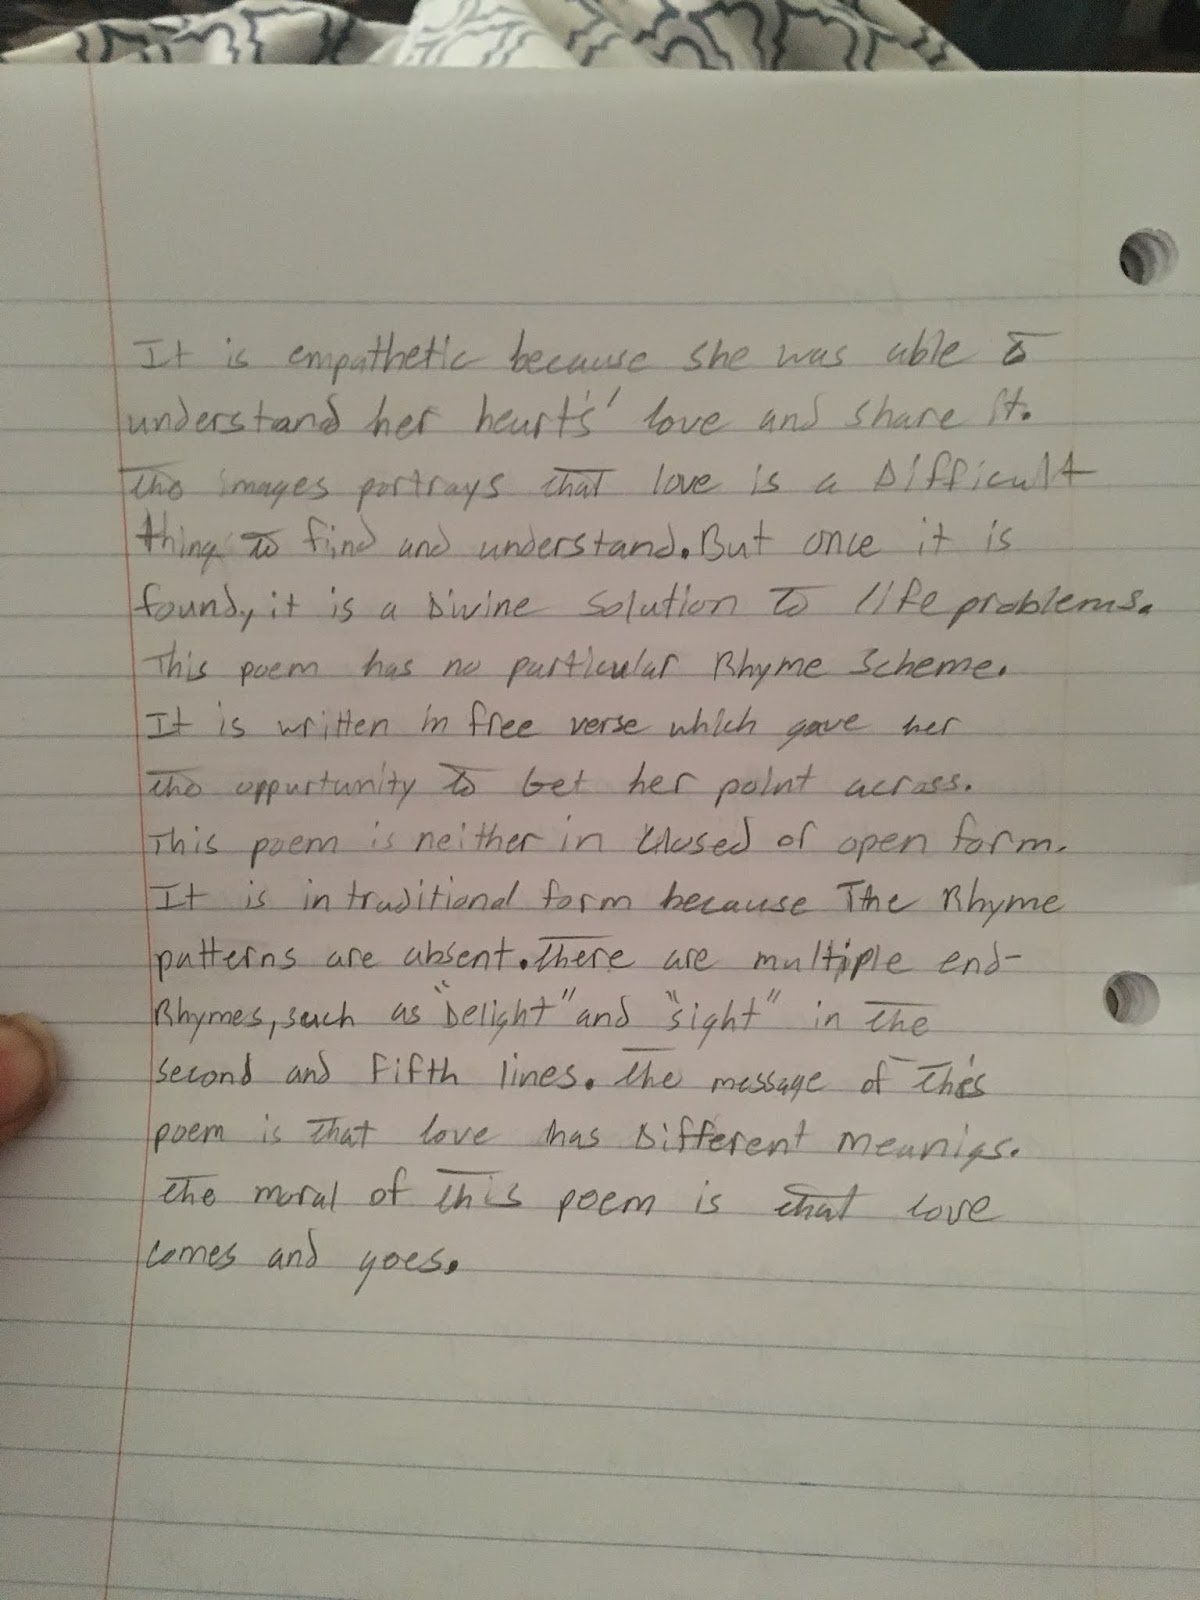 It is empathetic because she was able to
understand her heart's' love and share it.
The images portrays that love is a Difficult
thing to find and understand. But once it is
found, it is a Divine Solution to life problems.
This poem has no particular Rhyme Scheme.
It is written in free verse which gave her
the oppurtunity to Get her point across.
This poem is neither in Closed of open form.
It is in traditional form because The Rhyme
patterns are absent. There are multiple end-
Rhymes, such as "Delight" and "sight" in the
second and Fifth lines. The message of this
poem is that love has Different Meanigs.
The moral of this poem is that love
comes and goes.